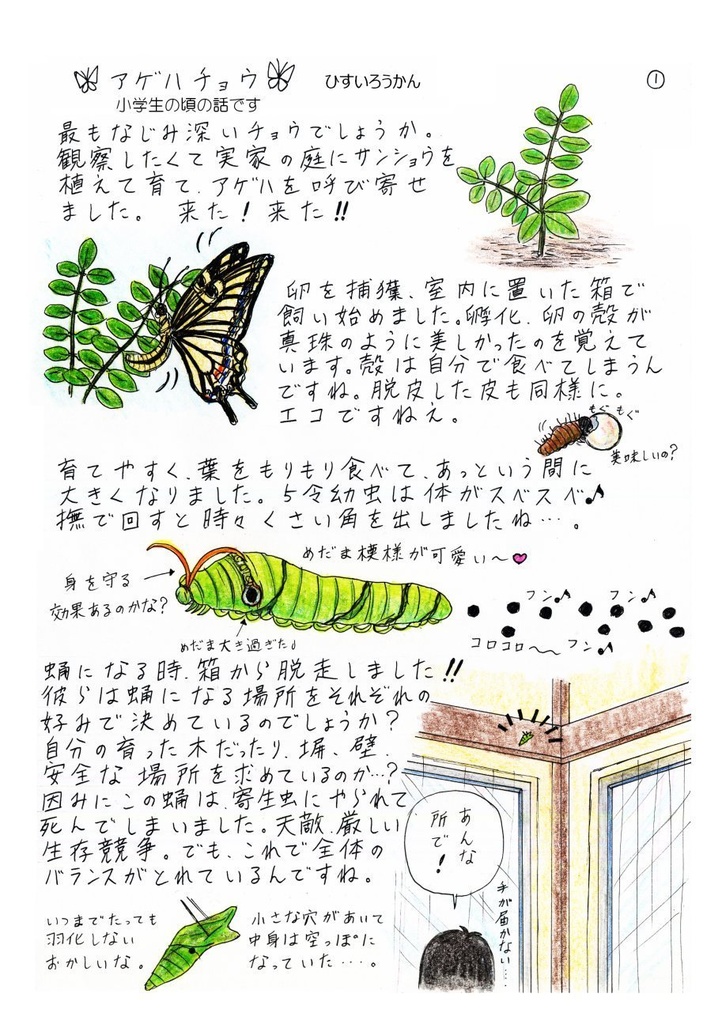 アゲハチョウ ひすいろうかん ①
小学生の頃の話です
最もなじみ深いチョウでしょうか。
観察したくて実家の庭にサンショウを
植えて育て、アゲハを呼び寄せ
ました。 来た！来た!!
卵を捕獲、室内に置いた箱で
飼い始めました。孵化、卵の殻が
真珠のように美しかったのを覚えて
います。殻は自分で食べてしまうん
ですね。脱皮した皮も同様に。
エコですねえ。
もぐもぐ
美味しいの？
育てやすく、葉をもりもり食べて、あっという間に
大きくなりました。5令幼虫は体がスベスベ♪
撫で回すと時々くさい角を出しましたね…。
めだま模様が可愛い〜♥
身を守る
効果あるのかな？
めだま大き過ぎた♩
フン♪ フン♪
コロコロ〜〜フン♪
蛹になる時、箱から脱走しました!!
彼らは蛹になる場所をそれぞれの
好みで決めているのでしょうか？
自分の育った木だったり、塀、壁、
安全な場所を求めているのか…？
因みにこの蛹は、寄生虫にやられて
死んでしまいました。天敵、厳しい
生存競争。でも、これで全体の
バランスがとれているんですね。
あんな
所で！
手が届かない…
いつまでたっても
羽化しない
おかしいな。
小さな穴があいて
中身は空っぽに
なっていた…。